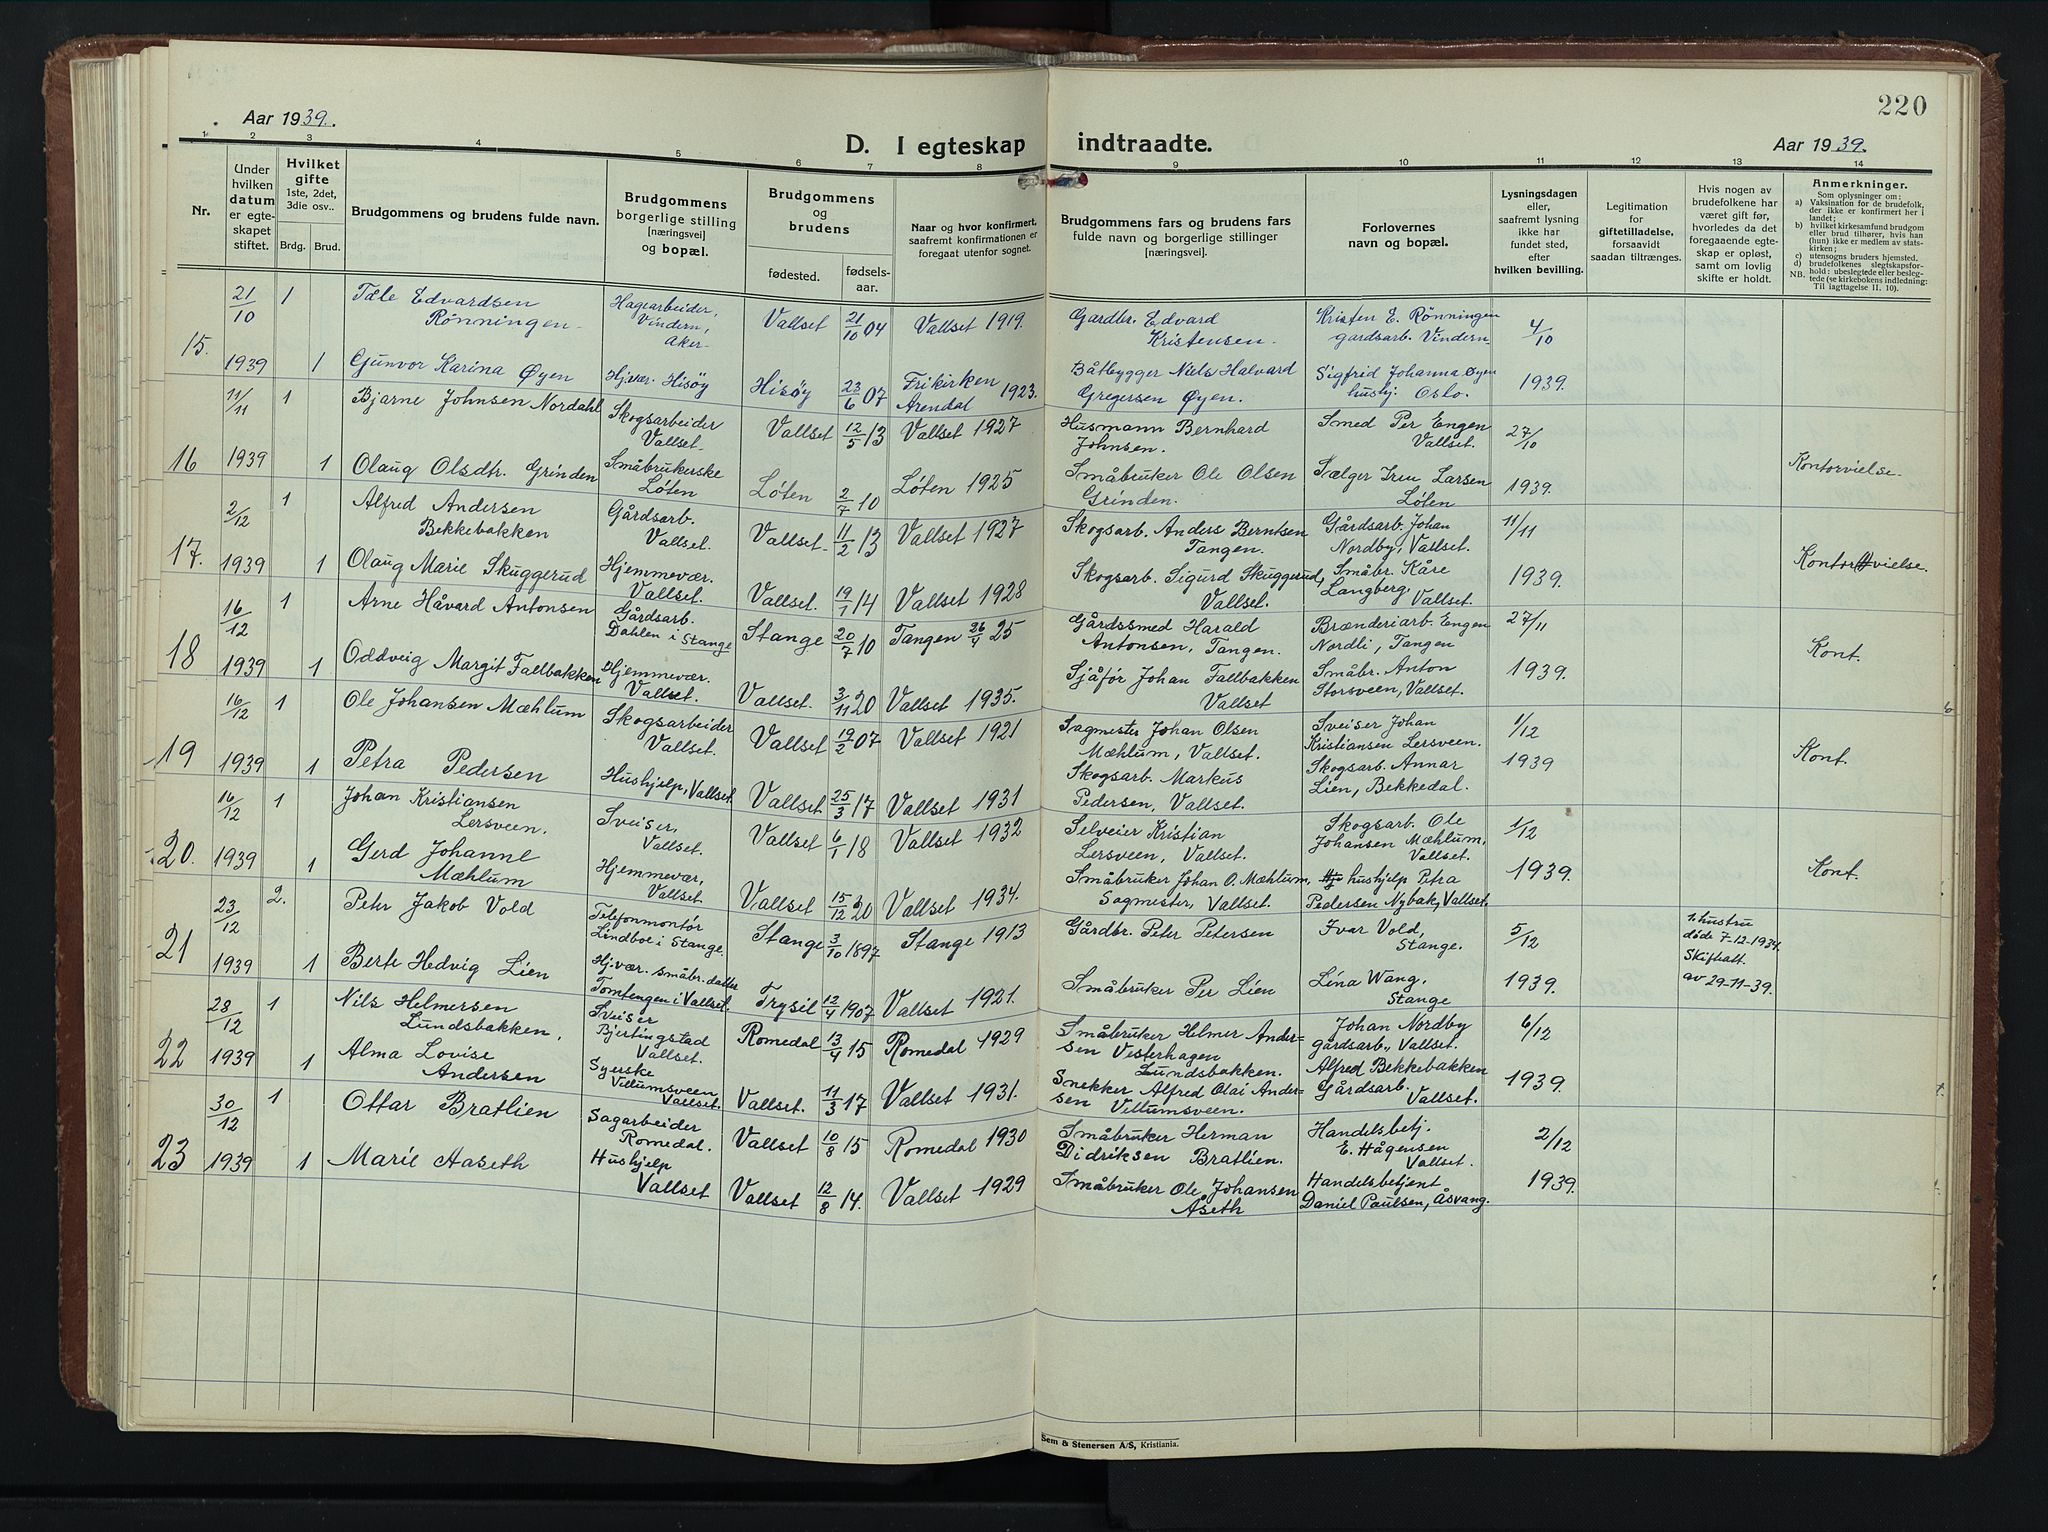 220
Aar 1939.
D. I egteskap indtraadte.
Aar 1939.
1 2 3 4 5 6 7 8 9 10 11 12 13 14
Nr.
Under hvilken datum er egteskapet stiftet.
Hvilket gifte 1ste, 2det, 3die osv..
Brdg. Brud.
Brudgommens og brudens fulde navn.
Brudgommens borgerlige stilling [næringsvei] og bopæl.
Brudgommens og brudens
fødested. fødsels-aar.
Naar og hvor konfirmert, saafremt konfirmationen er foregaat utenfor sognet.
Brudgommens fars og brudens fars fulde navn og borgerlige stillinger [næringsvei].
Forlovernes navn og bopæl.
Lysningsdagen eller, saafremt lysning ikke har fundet sted, efter hvilken bevilling.
Legitimation for giftetilladelse, forsaavidt saadan tiltrænges.
Hvis nogen av brudefolkene har været gift før, hvorledes da det foregaaende egteskap er opløst, samt om lovlig skifte er holdt.
Anmerkninger.
Som oplysninger om:
a) Vaksination for de brudefolk, der ikke er konfirmert her i landet;
b) hvilket kirkesamfund brudgom eller brud tilhører, hvis han (hun) ikke er medlem av statskirken;
c) utensogns bruders hjemsted.
d) brudefolkenes slegtskapsforhold: ubeslegtede eller beslegtede (se kirkebokens indledning: Til iagttagelse II. 10).
NB.
15. 21/10 1 Tale Edvardsen Rönningen Hagearbeider, Vindern, Aker. Vallset 21/10 04 Vallset 1919. Gardbr. Edvard Kristensen. Kristen E. Rönningen gardsarb. Vindern 4/10
1939 1 Gunvor Karina Øyen Hj.vær. Hisöy Hisöy 23/6 07 Frikirken Arendal 1923. Båtbygger Niels Halvard Gregersen Øyen. Sigfrid Johanna Øyen hushj. Oslo. 1939.
16 11/11 1 Bjarne Johnsen Nordahl Skogsarbeider Vallset Vallset 12/5 13 Vallset 1927 Husmann Bernhard Johnsen. Smed Per Engen Vallset. 27/10
1939 1 Olaug Olsdtr. Grinden Småbrukerske Löten Löten 2/7 10 Löten 1925 Småbruker Ole Olsen Grinden. Sælger Larsen Löten 1939. Kontorvielse.
17. 2/12 1 Alfred Andersen Bekkebakken Gårdsarb. Vallset. Vallset 11/2 13 Vallset 1927 Skogsarb. Anders Berntsen Tangen. Gårdsarb. Johan Nordby, Vallset. 11/11
1939 1 Olaug Marie Skuggerud Hjemmevær. Vallset. Vallset. 19/1 14 Vallset 1928 Skogsarb. Sigurd Skuggerud, Vallset. Småbr. Kåre Langberg, Vallset. 1939. Kontorvielse.
18 16/12 1 Arne Håvard Antonsen Gårdsarb. Dahlen i Stange Stange 20/7 10 Tangen 26/4 25 Gårdssmed Harald Antonsen, Tangen. Brænderiarb. Engen Nordli, Tangen 27/11
1939 1 Oddveig Margit Fallbakken Hjemmevær. Vallset. Vallset. 3/11 20 Vallset 1935. Sjåfør Johan Fallbakken Vallset Småbr. Anton Storsveen, Vallset. 1939. Kont.
19 16/12 1 Ole Johansen Mæhlum Skogsarbeider Vallset. Vallset 19/2 07 Vallset 1921 Sagmester Johan Olsen Mæhlum, Vallset. Sveiser Johan Kristiansen Lersveen. 1/12
1939 1 Petra Pedersen Hushjelp, Vallset. Vallset 25/3 17 Vallset 1931 Skogsarb. Markus Pedersen, Vallset. Skogsarb. Annar Lien, Bekkedal. 1939 Kont.
20. 16/12 1 Johan Kristiansen Lersveen. Sveiser, Vallset. Vallset 6/1 18 Vallset 1932 Selveier Kristian Lersveen, Vallset. Skogsarb. Ole Johansen Mæhlum, Vallset. 1/12
1939 1 Gerd Johanne Mæhlum Hjemmevær, Vallset. Vallset 15/12 20 Vallset 1934. Småbruker Johan O. Mæhlum, Sagmester, Vallset. hushjelp Petra Pedersen Nybak, Vallset. 1939. Kont.
21 23/12 2. Peter Jakob Vold Telefonmontör Lindboe i Stange. Stange 3/10 1897 Stange 1913 Gårdbr. Peter Petersen Ivar Vold, Stange. 5/12 1. hustru döde 7-12-1934. Skifteatt. av 29-11-39.
1939 1 Berte Hedvig Lien Hj.vær. småbr. datter Tomtengen i Vallset. Trysil 12/4 1907 Vallset 1921. Småbruker Per Lien Lina Wang, Stange 1939.
22 28/12 1 Nils Helmersen Lundsbakken, Sveiser Bjerlingstad Vallset. Romedal 13/4 15 Romedal 1929 Småbruker Helmer Andersen Vesterhagen Lundsbakken. Johan Nordby gårdsarb., Vallset. 6/12
1939 1 Alma Lovise Andersen Syerske Villumsveen Vallset. Vallset. 11/3 17 Vallset 1931. Snekker Alfred Olai Andersen Villumsveen. Alfred Bekkebakken Gårdsarb. Vallset. 1939.
23 30/12 1 Ottar Bratlien Sagarbeider Romedal. Vallset 10/8 15 Romedal 1930 Småbruker Herman Didriksen Bratlien. Handelsbetj. E. Hågensen Vallset. 2/12
1939 1 Marie Aaseth Hushjelp Vallset Vallset 12/8 14. Vallset 1929 Småbruker Ole Johansen Aseth Handelsbetjent Daniel Paulsen, Åsvang. 1939.
Sem & Stenersen A/S, Kristiania.